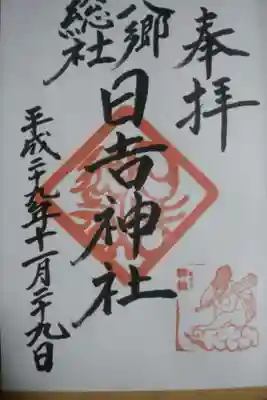 奉拝
八郷
総社
日吉神社
平成二十九年十一月二十九日